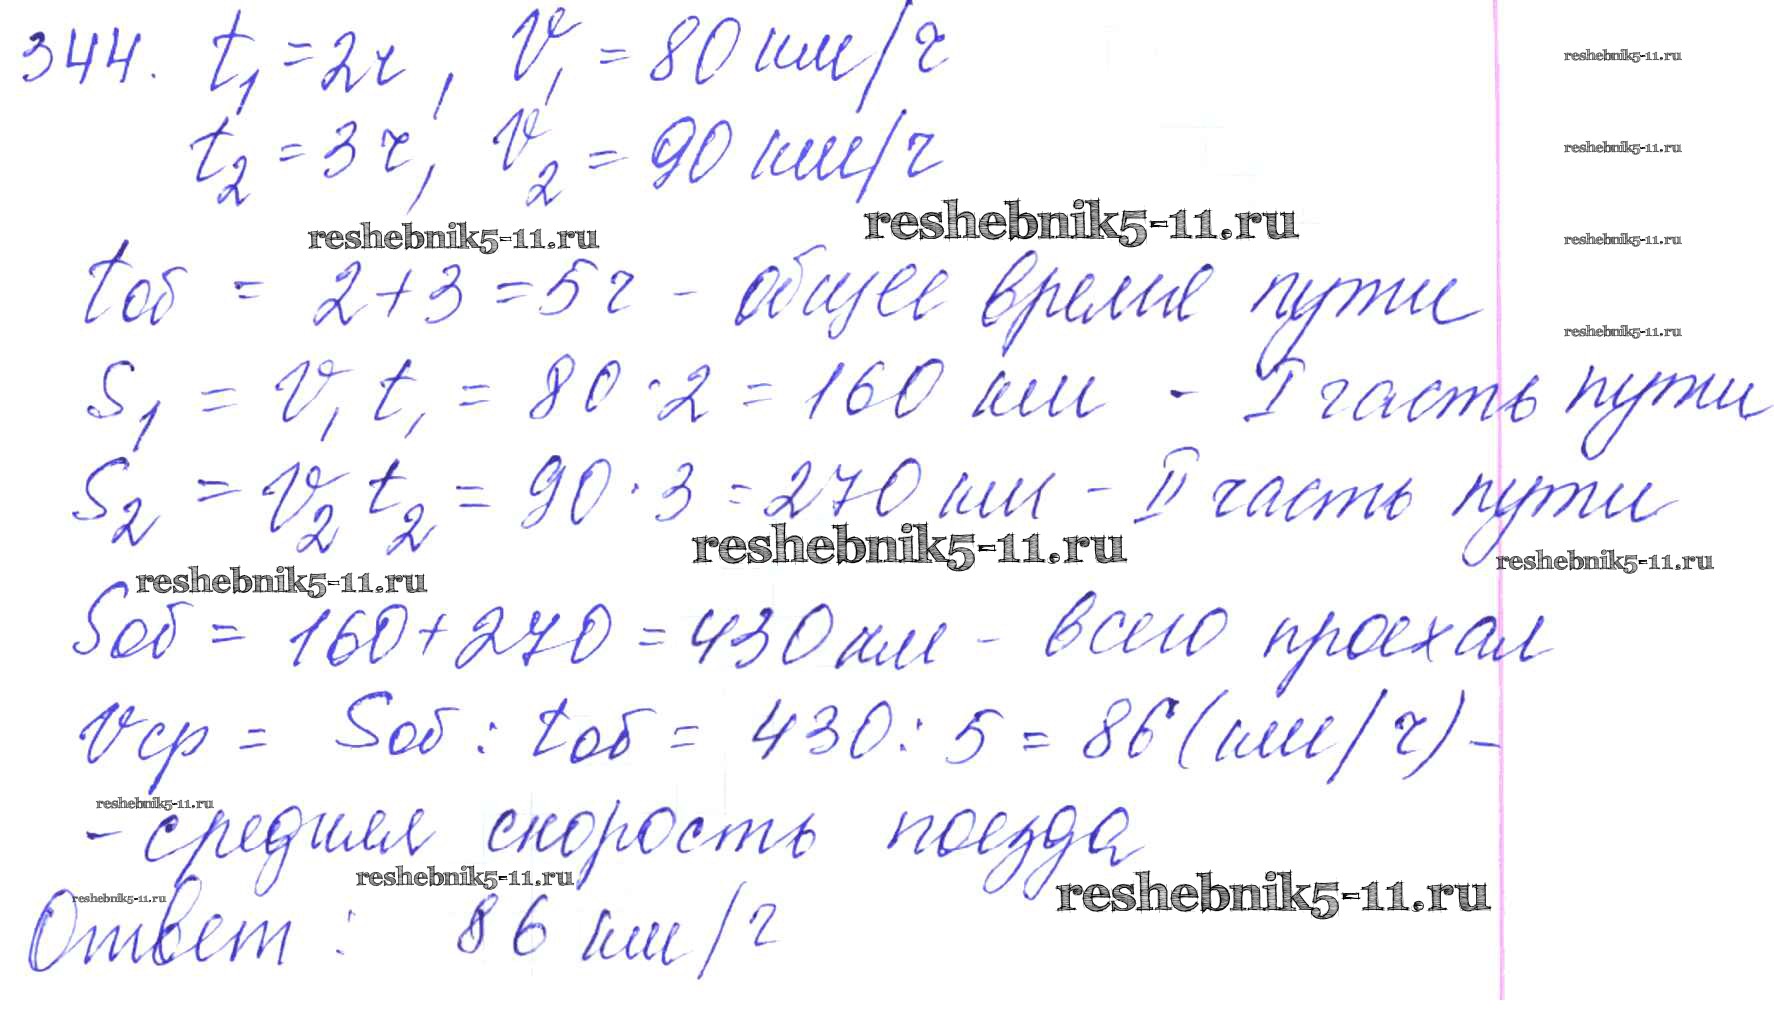 344. t₁ = 2ч, V₁ = 80 км/ч
reshebnik5-11.ru
t₂ = 3ч, V₂ = 90 км/ч
reshebnik5-11.ru
reshebnik5-11.ru
reshebnik5-11.ru
reshebnik5-11.ru
tоб = 2+3 = 5ч - общее время пути
reshebnik5-11.ru
S₁ = V₁t₁ = 80·2 = 160 км - I часть пути
S₂ = V₂t₂ = 90·3 = 270 км - II часть пути
reshebnik5-11.ru
reshebnik5-11.ru
reshebnik5-11.ru
Sоб = 160+270 = 430 км - всего проехал
Vср = Sоб : tоб = 430 : 5 = 86 (км/ч) -
reshebnik5-11.ru
- средняя скорость поезда
reshebnik5-11.ru
reshebnik5-11.ru
reshebnik5-11.ru
Ответ: 86 км/ч